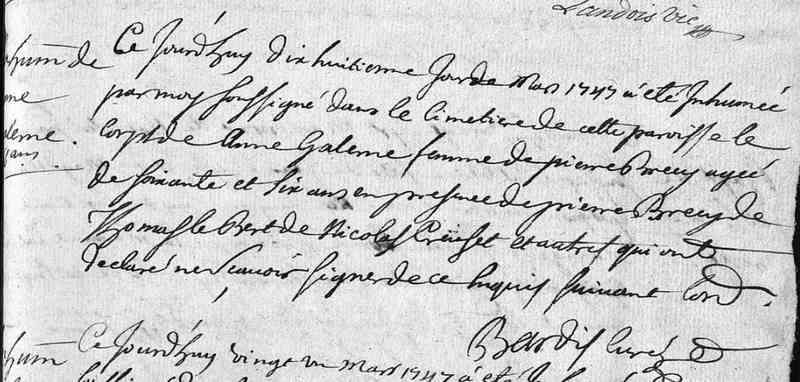 Landois vic
Ce Jourdhuy dixhuitieme Jour de Mars 1747 a été Inhumée
par moy soussigné dans le Cimetiere de cette parroisse le
Corps de Anne Galeme femme de pierre Breuy ageé
de soixante et six ans en presence de pierre Breuy de
Thomas le Bert de Nicolas Creuset et autres qui ont
declaré ne scavoir signer de ce Enquis suivant lord
Bardis Curé
Inhum de
Anne
Galeme.
ans
Inhum
Ce Jourdhuy vingt un mars 1747 a été